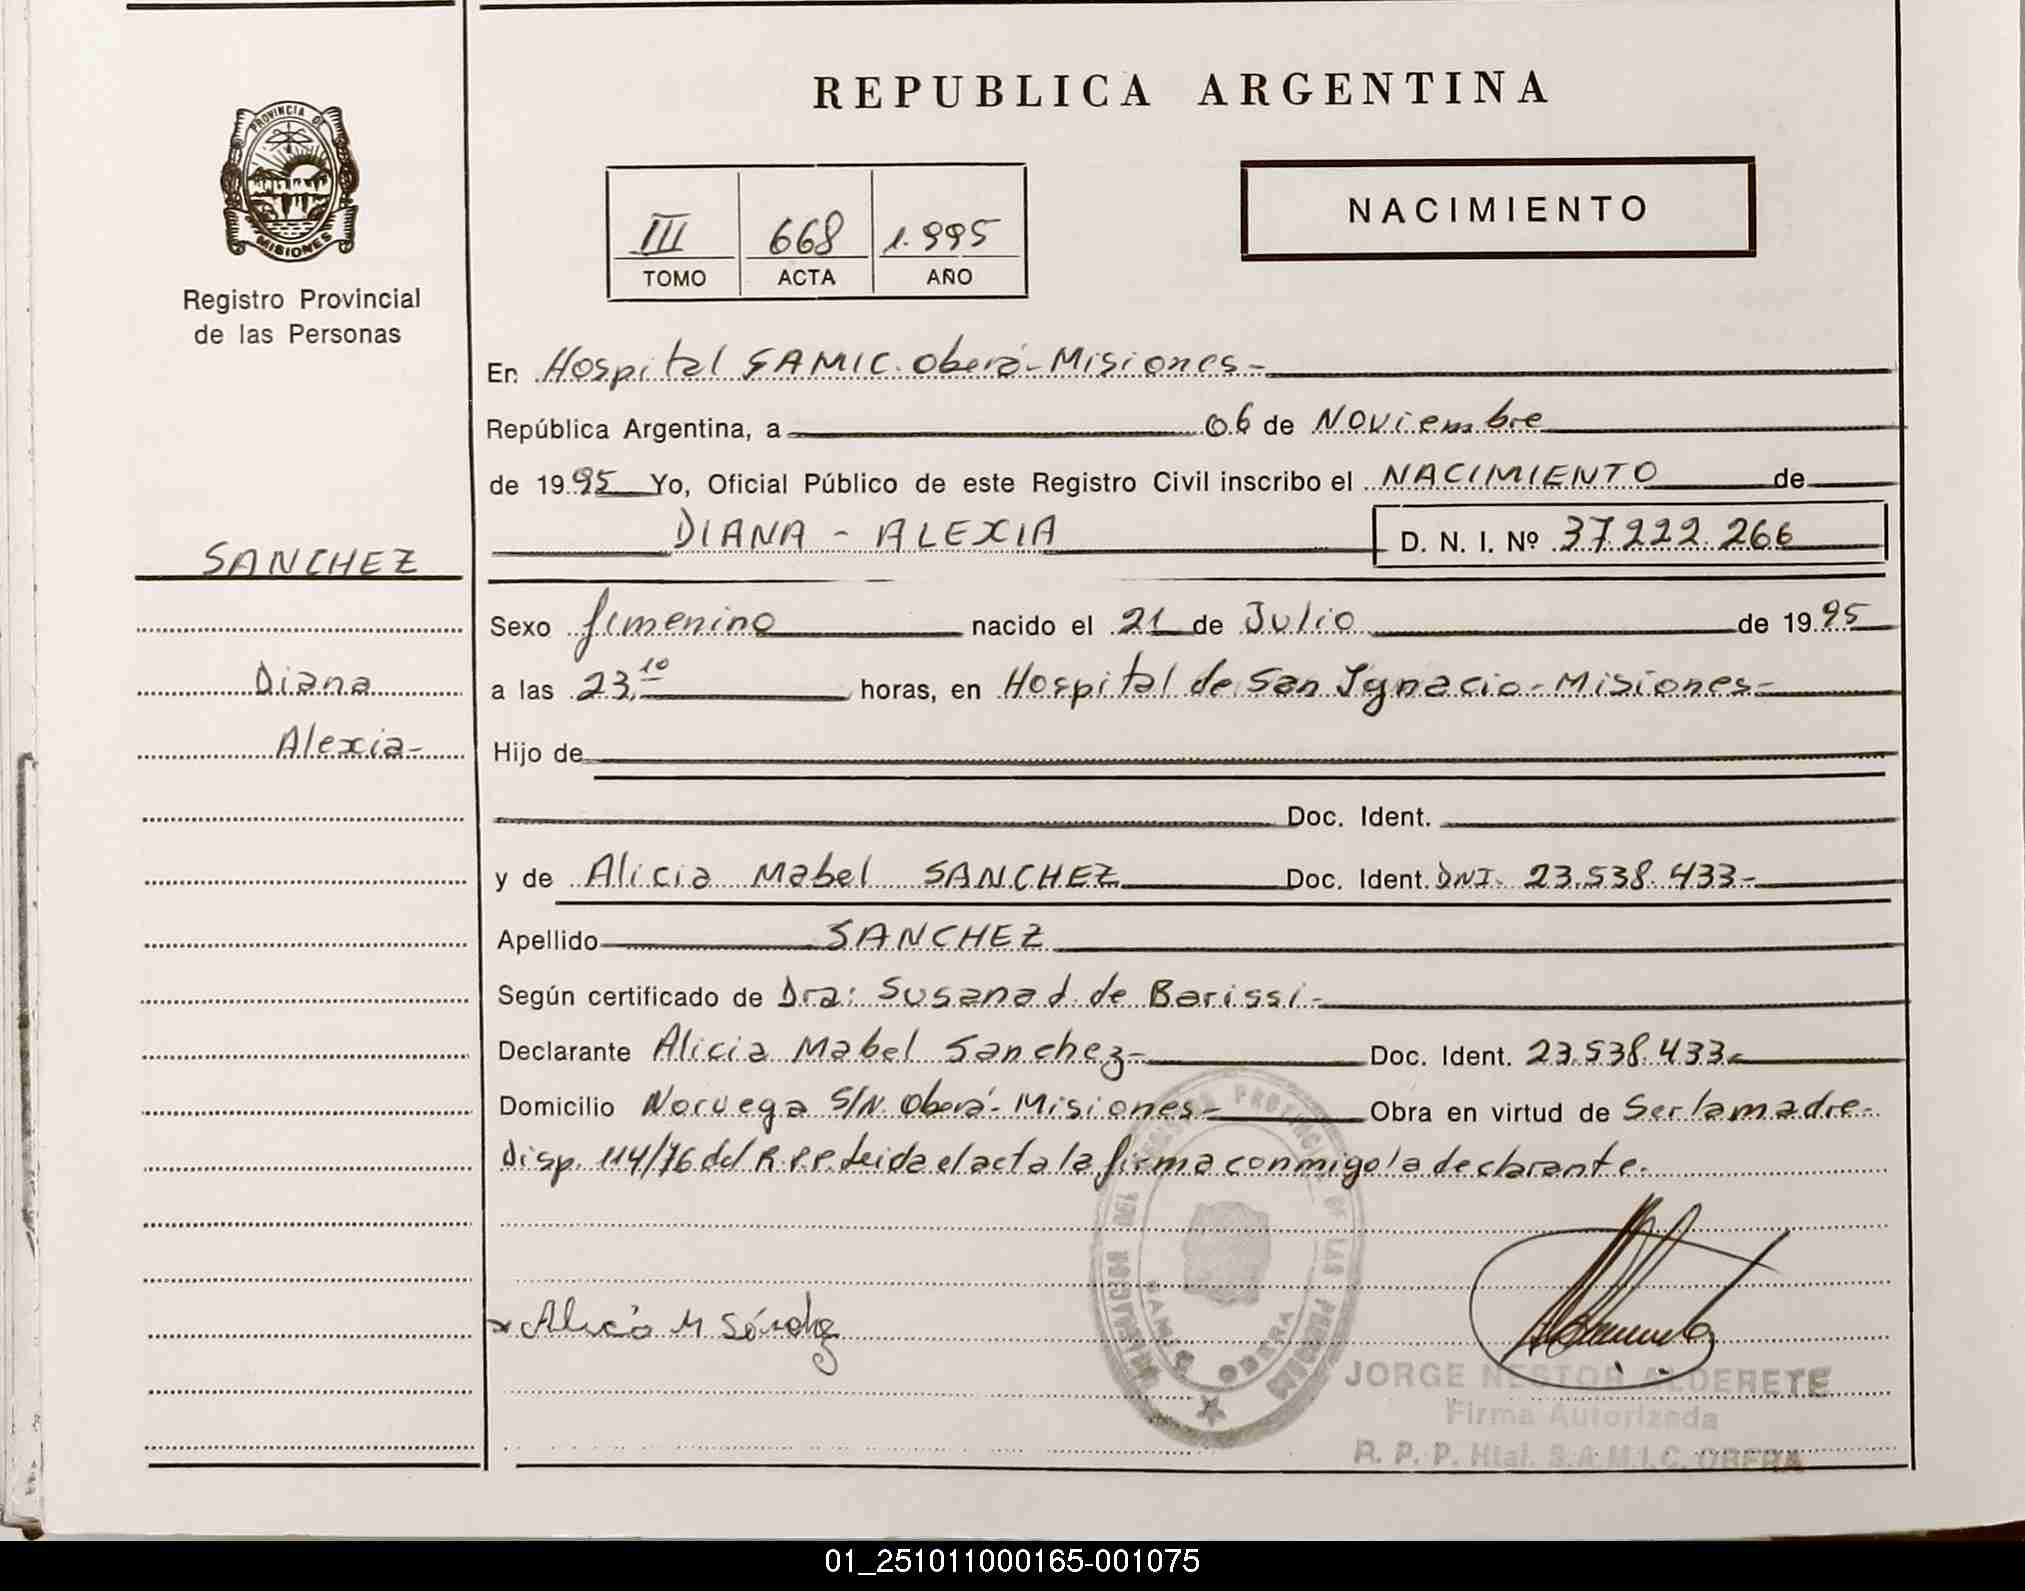 REPUBLICA ARGENTINA
PROVINCIA DE
MISIONES
Registro Provincial
de las Personas
III 668 1.995
TOMO ACTA AÑO
NACIMIENTO
En Hospital SAMIC. Oberá - Misiones -
República Argentina, a 06 de Noviembre
de 1995 Yo, Oficial Público de este Registro Civil inscribo el NACIMIENTO de
DIANA - ALEXIA D. N. I. Nº 37.222.266
SANCHEZ
Diana
Alexia -
Sexo femenino nacido el 21 de Julio de 1995
a las 23,10 horas, en Hospital de San Ignacio - Misiones -
Hijo de
Doc. Ident.
y de Alicia Mabel SANCHEZ Doc. Ident. DNI. 23.538.433 -
Apellido SANCHEZ
Según certificado de Dra: Susana d. de Barissi -
Declarante Alicia Mabel Sanchez - Doc. Ident. 23.538.433 -
Domicilio Noruega S/N. Oberá - Misiones - Obra en virtud de Ser la madre -
Disp. 114/76 del R.P.P. Leida el acta la firma conmigo la declarante.
Alicia M Sánchez
JORGE NESTOR ALDERETE
Firma Autorizada
R. P. P. Htal. S.A.M.I.C. OBERA
01_251011000165-001075